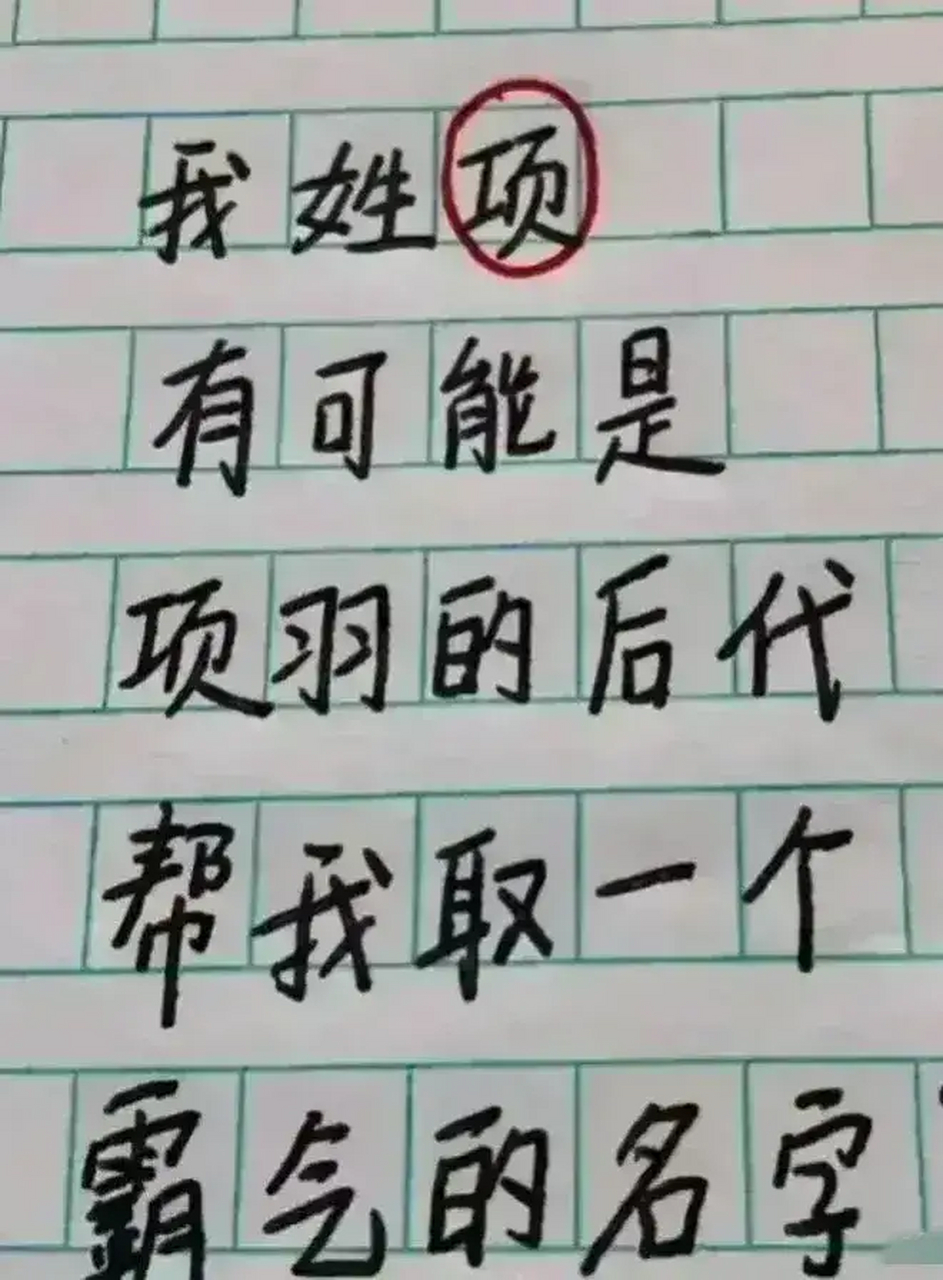 我姓项
有可能是
项羽的后代
帮我取一个
霸气的名字